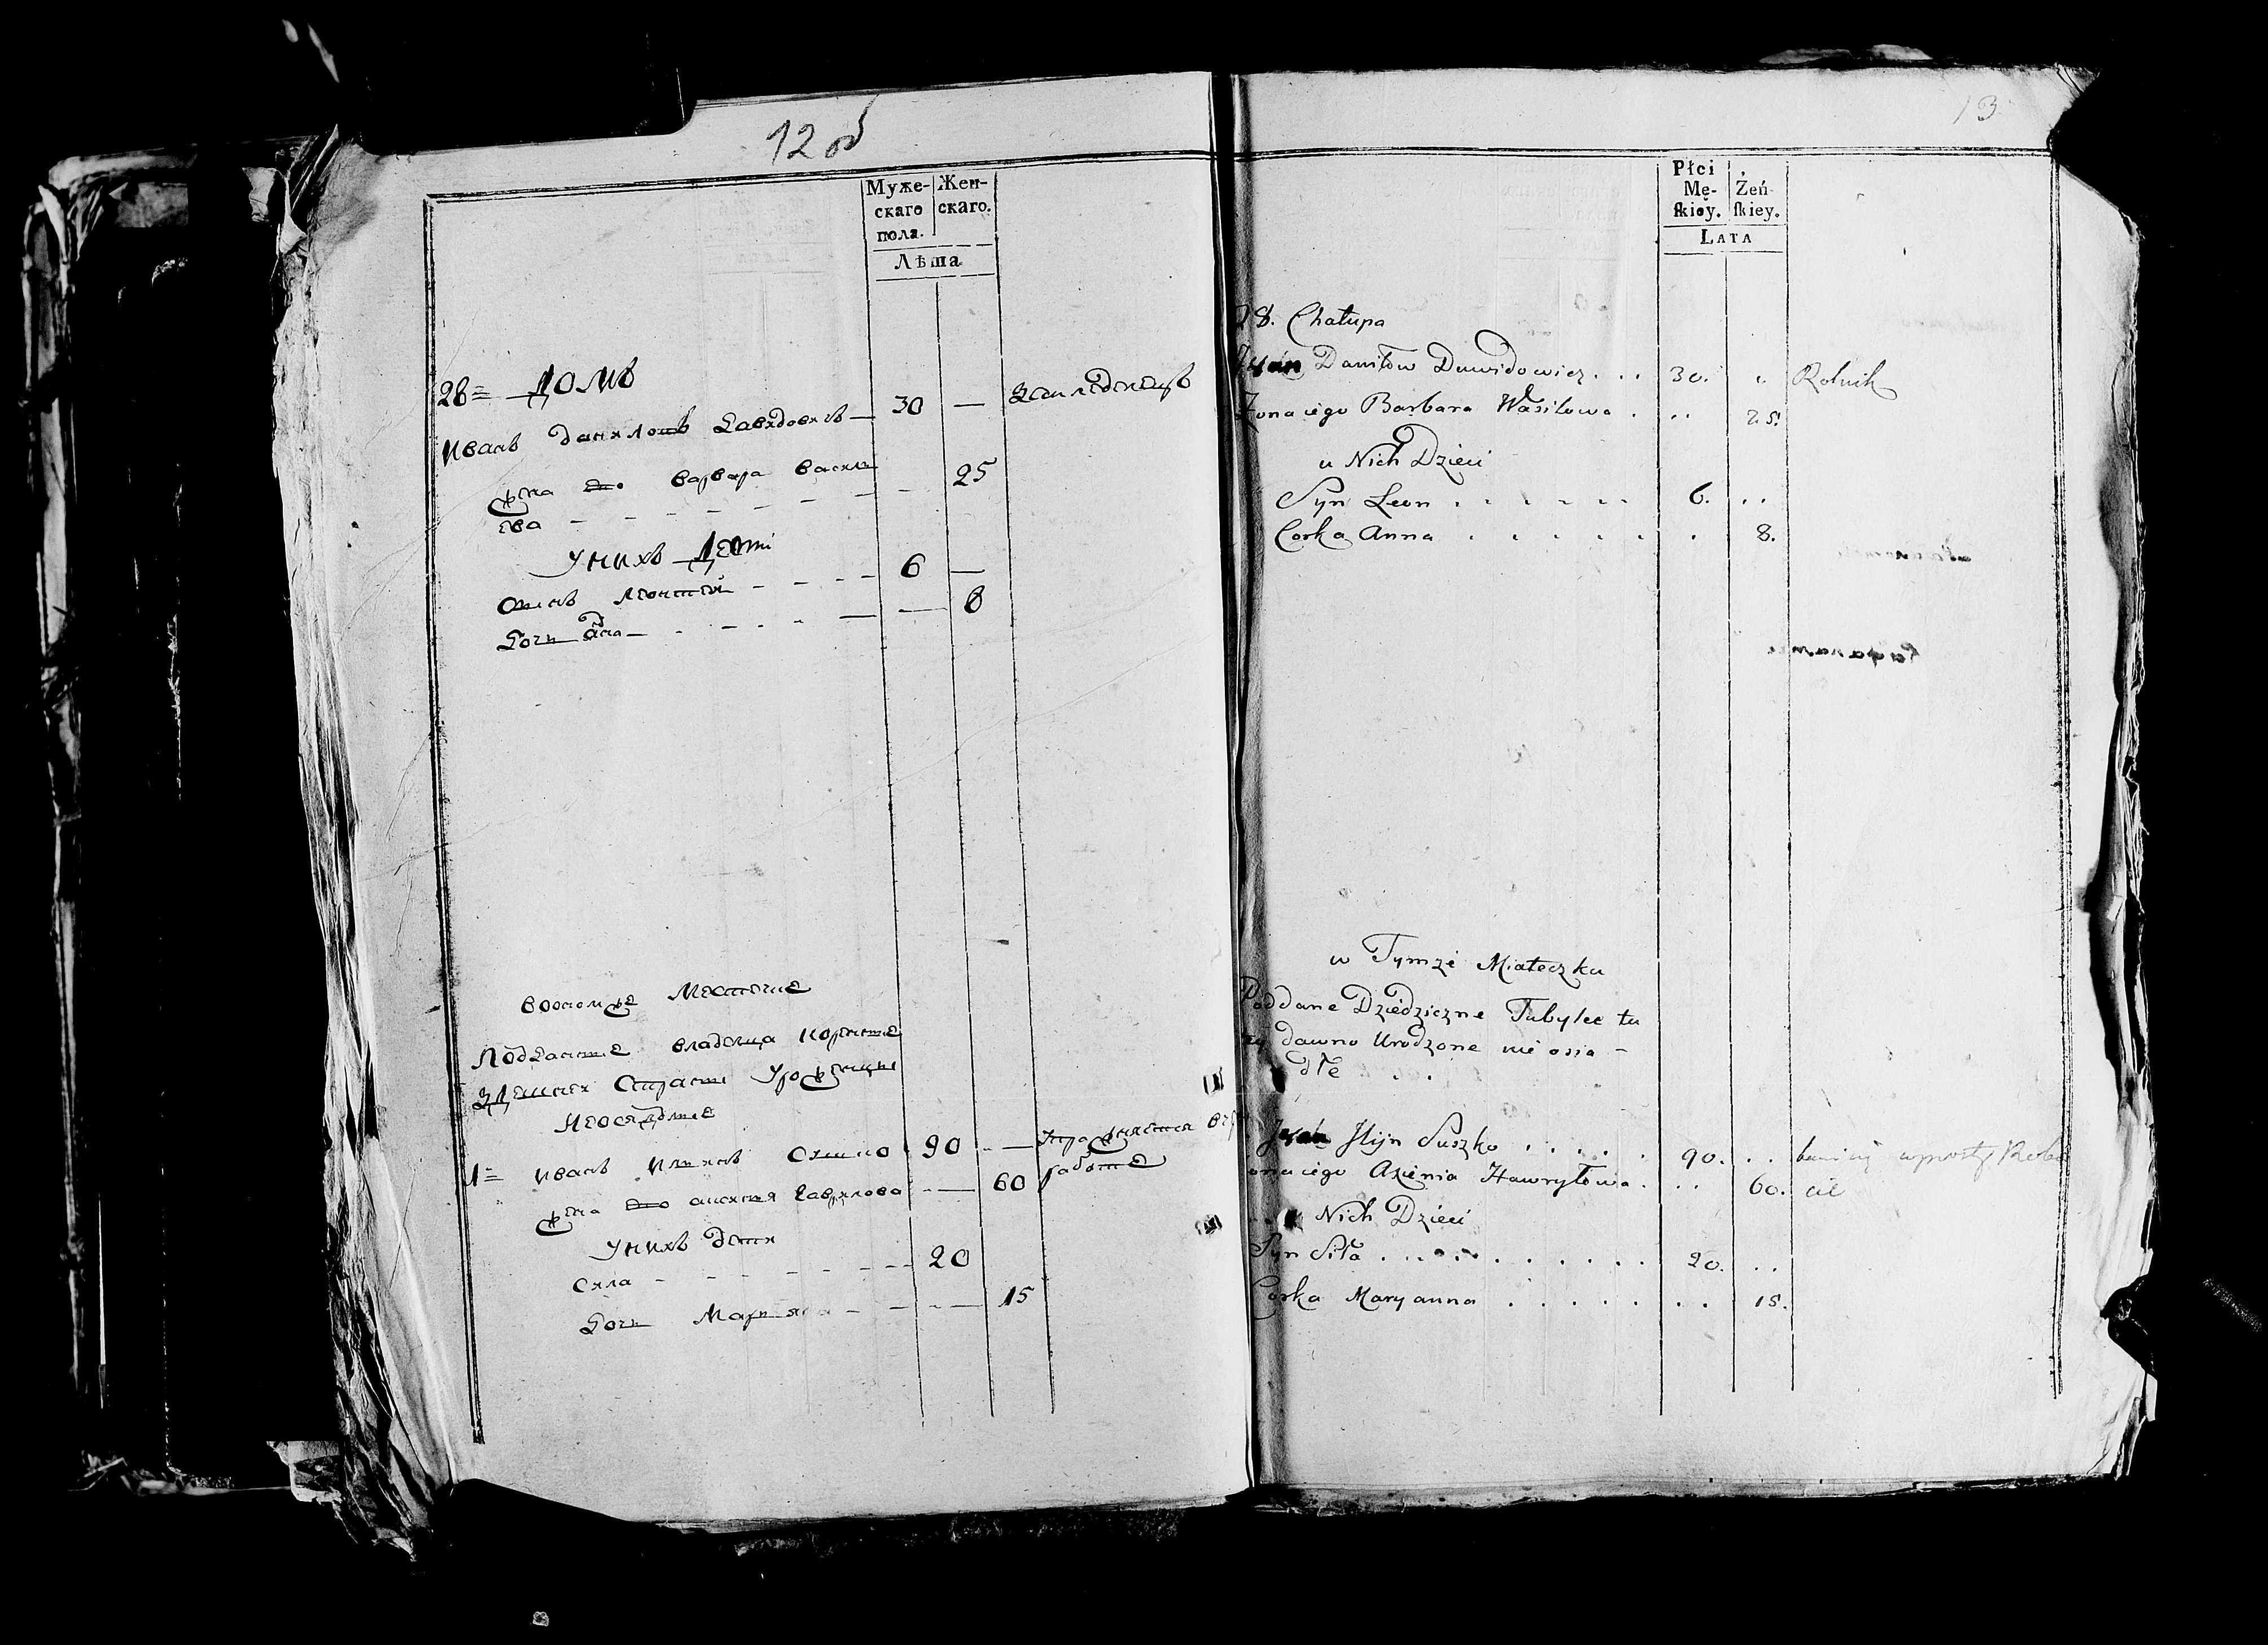 12 об
Муже-
скаго
пола.
Жен-
скаго.
Лѣта
28 = Домъ
Иванъ Даниловъ Давидовичъ — 30 — Земледелецъ
жена его Варвара Васили
ева - - - - - - - 25
у нихъ Дети
Сынъ Леонтей - - - - 6 —
Дочи Анна — - - - - — 8
в оном же Местечке
Подданные владельца коренные
здешние Старые Уроженцы
Неоседлые
1 = Иванъ Илинъ 90 - — Упражняется в
жена его Гаврилова - — 60 работе
у нихъ дети
Сила - - - - - - 20
Дочи Марияна - - - — 15
13
Płci
Mę-
skiey.
Żeń-
skiey.
LATA
28. Chałupa
Daniłow Dawidowicz . . . 30. „ Rolnik
Żona iego Barbara Wasilowa . .. 25.
u Nich Dzieci
Syn Leon . . . . . . 6. ..
Corka Anna . . . . . . . 8.
w Tymże Miasteczku
Poddane Dziedziczne Tubylce tu
zy dawno Urodzone nie osia-
dłe . .
Iljin Suszko . . . . . . 90. .. bawi się w prosty Robo
ona iego Axienia Hawryłowa . .. 60. cie
u Nich Dzieci
Syn Siła . . . . . . . . . . 20. ..
Corka Maryanna . . . . . . . . 15.